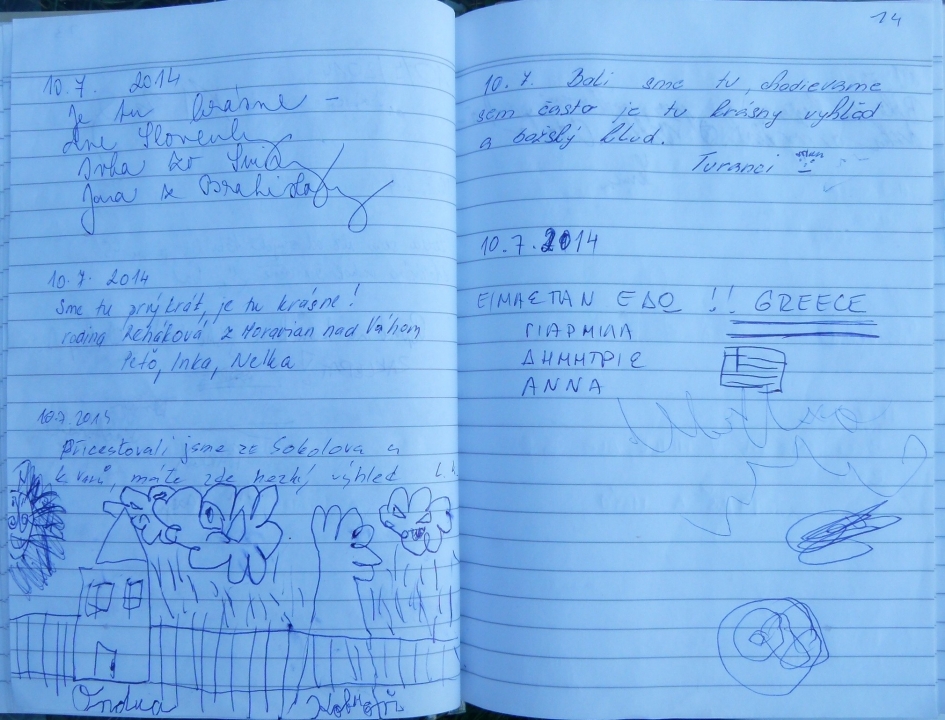 10.7. 2014
Je tu krásne –
dve Slovenky
Jana z Bratislavy
10.7. 2014
Sme tu prvýkrát, je tu krásne!
rodina Řeháková z Moravian nad Váhom
Peťo, Inka, Nelka
10.7.2014
Přicestovali jsme ze Sokolova a
K. Varů, máte zde hezký výhled
14
10.7. Boli sme tu, chodievame
sem často je tu krásny výhľad
a božský kľud.
Turanci
10.7.2014
ΕΙΜΑΣΤΑΝ ΕΔΩ !! GREECE
ΓΙΑΡΜΙΛΑ
ΔΗΜΗΤΡΙΣ
ΑΝΝΑ